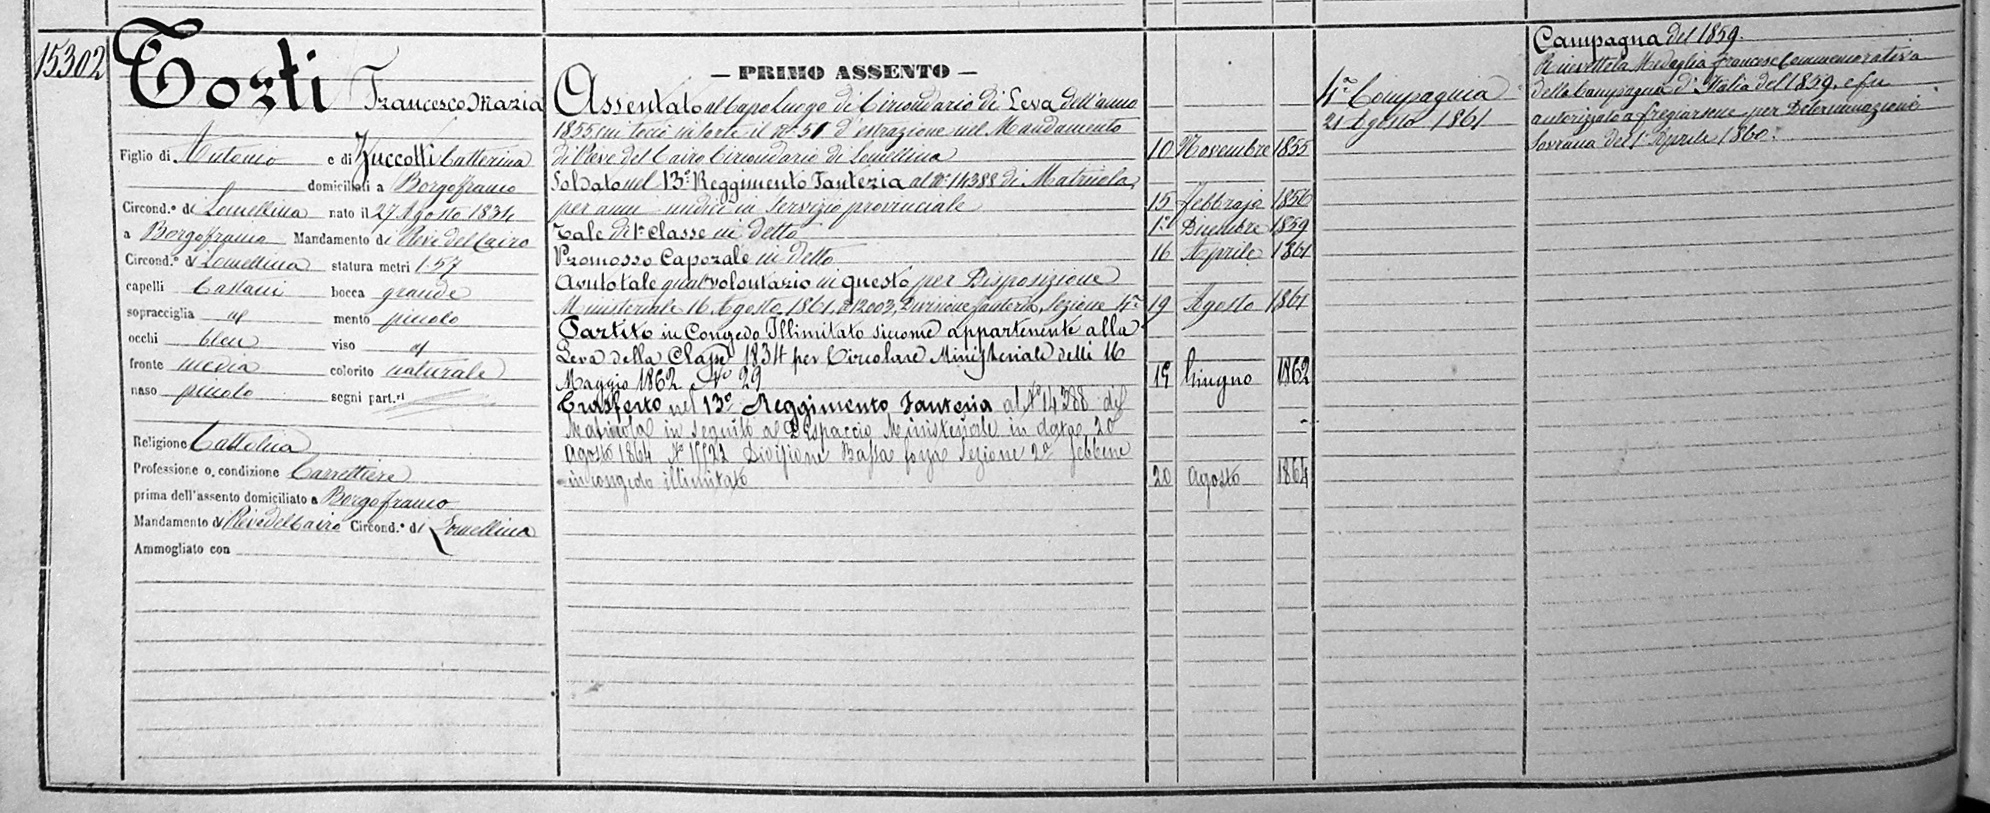 15302
Tosti Francesco Maria
Figlio di Antonio e di Zuccotti Catterina
domiciliati a Borgofranco
Circond.º di Lomellina nato il 27 Agosto 1834
a Borgofranco Mandamento di Pieve del Cairo
Circond.º di Lomellina statura metri 1.57
capelli Castani bocca grande
sopracciglia id mento piccolo
occhi bleu viso id
fronte media colorito naturale
naso piccolo segni part.ri
Religione Cattolica
Professione o condizione Carrettiere
prima dell'assento domiciliato a Borgofranco
Mandamento di Pieve del Cairo Circond.º di Lomellina
Ammogliato con
— PRIMO ASSENTO —
Assentato al Capoluogo di Circondario di Leva dell'anno
1855 cui toccò in sorte il Nº 51 d'estrazione nel Mandamento
di Pieve del Cairo Circondario di Lomellina 10 Novembre 1855
Soldato nel 13º Reggimento Fanteria al Nº 14388 di Matricola
per anni undici in servizio provinciale 15 febbrajo 1856
Tale di 1ª Classe in detto 1º Dicembre 1859
Promosso Caporale in detto 16 Aprile 1861
Avuto tale qual volontario in questo per Disposizione
Ministeriale 16 Agosto 1861, Nº 12003, Divisione fanteria, Sezione 4ª 19 Agosto 1861
Partito in Congedo Illimitato siccome appartenente alla
Leva della Classe 1834 per Circolare Ministeriale delli 16
Maggio 1862 Nº 29 15 Giugno 1862
Trasferto nel 13º Reggimento Fanteria al Nº 14388 di
Matricola in seguito al Dispaccio Ministeriale in data 20
Agosto 1864 Nº Divisione Bassa forza Sezione 2ª sebbene
in congedo illimitato 20 Agosto 1864
4ª Compagnia
21 Agosto 1861
Campagna del 1859.
Ricevette la Medaglia francese Commemorativa
della Campagna d'Italia del 1859, e fu
autorizzato a fregiarsene per Determinazione
Sovrana del 1º Aprile 1860.